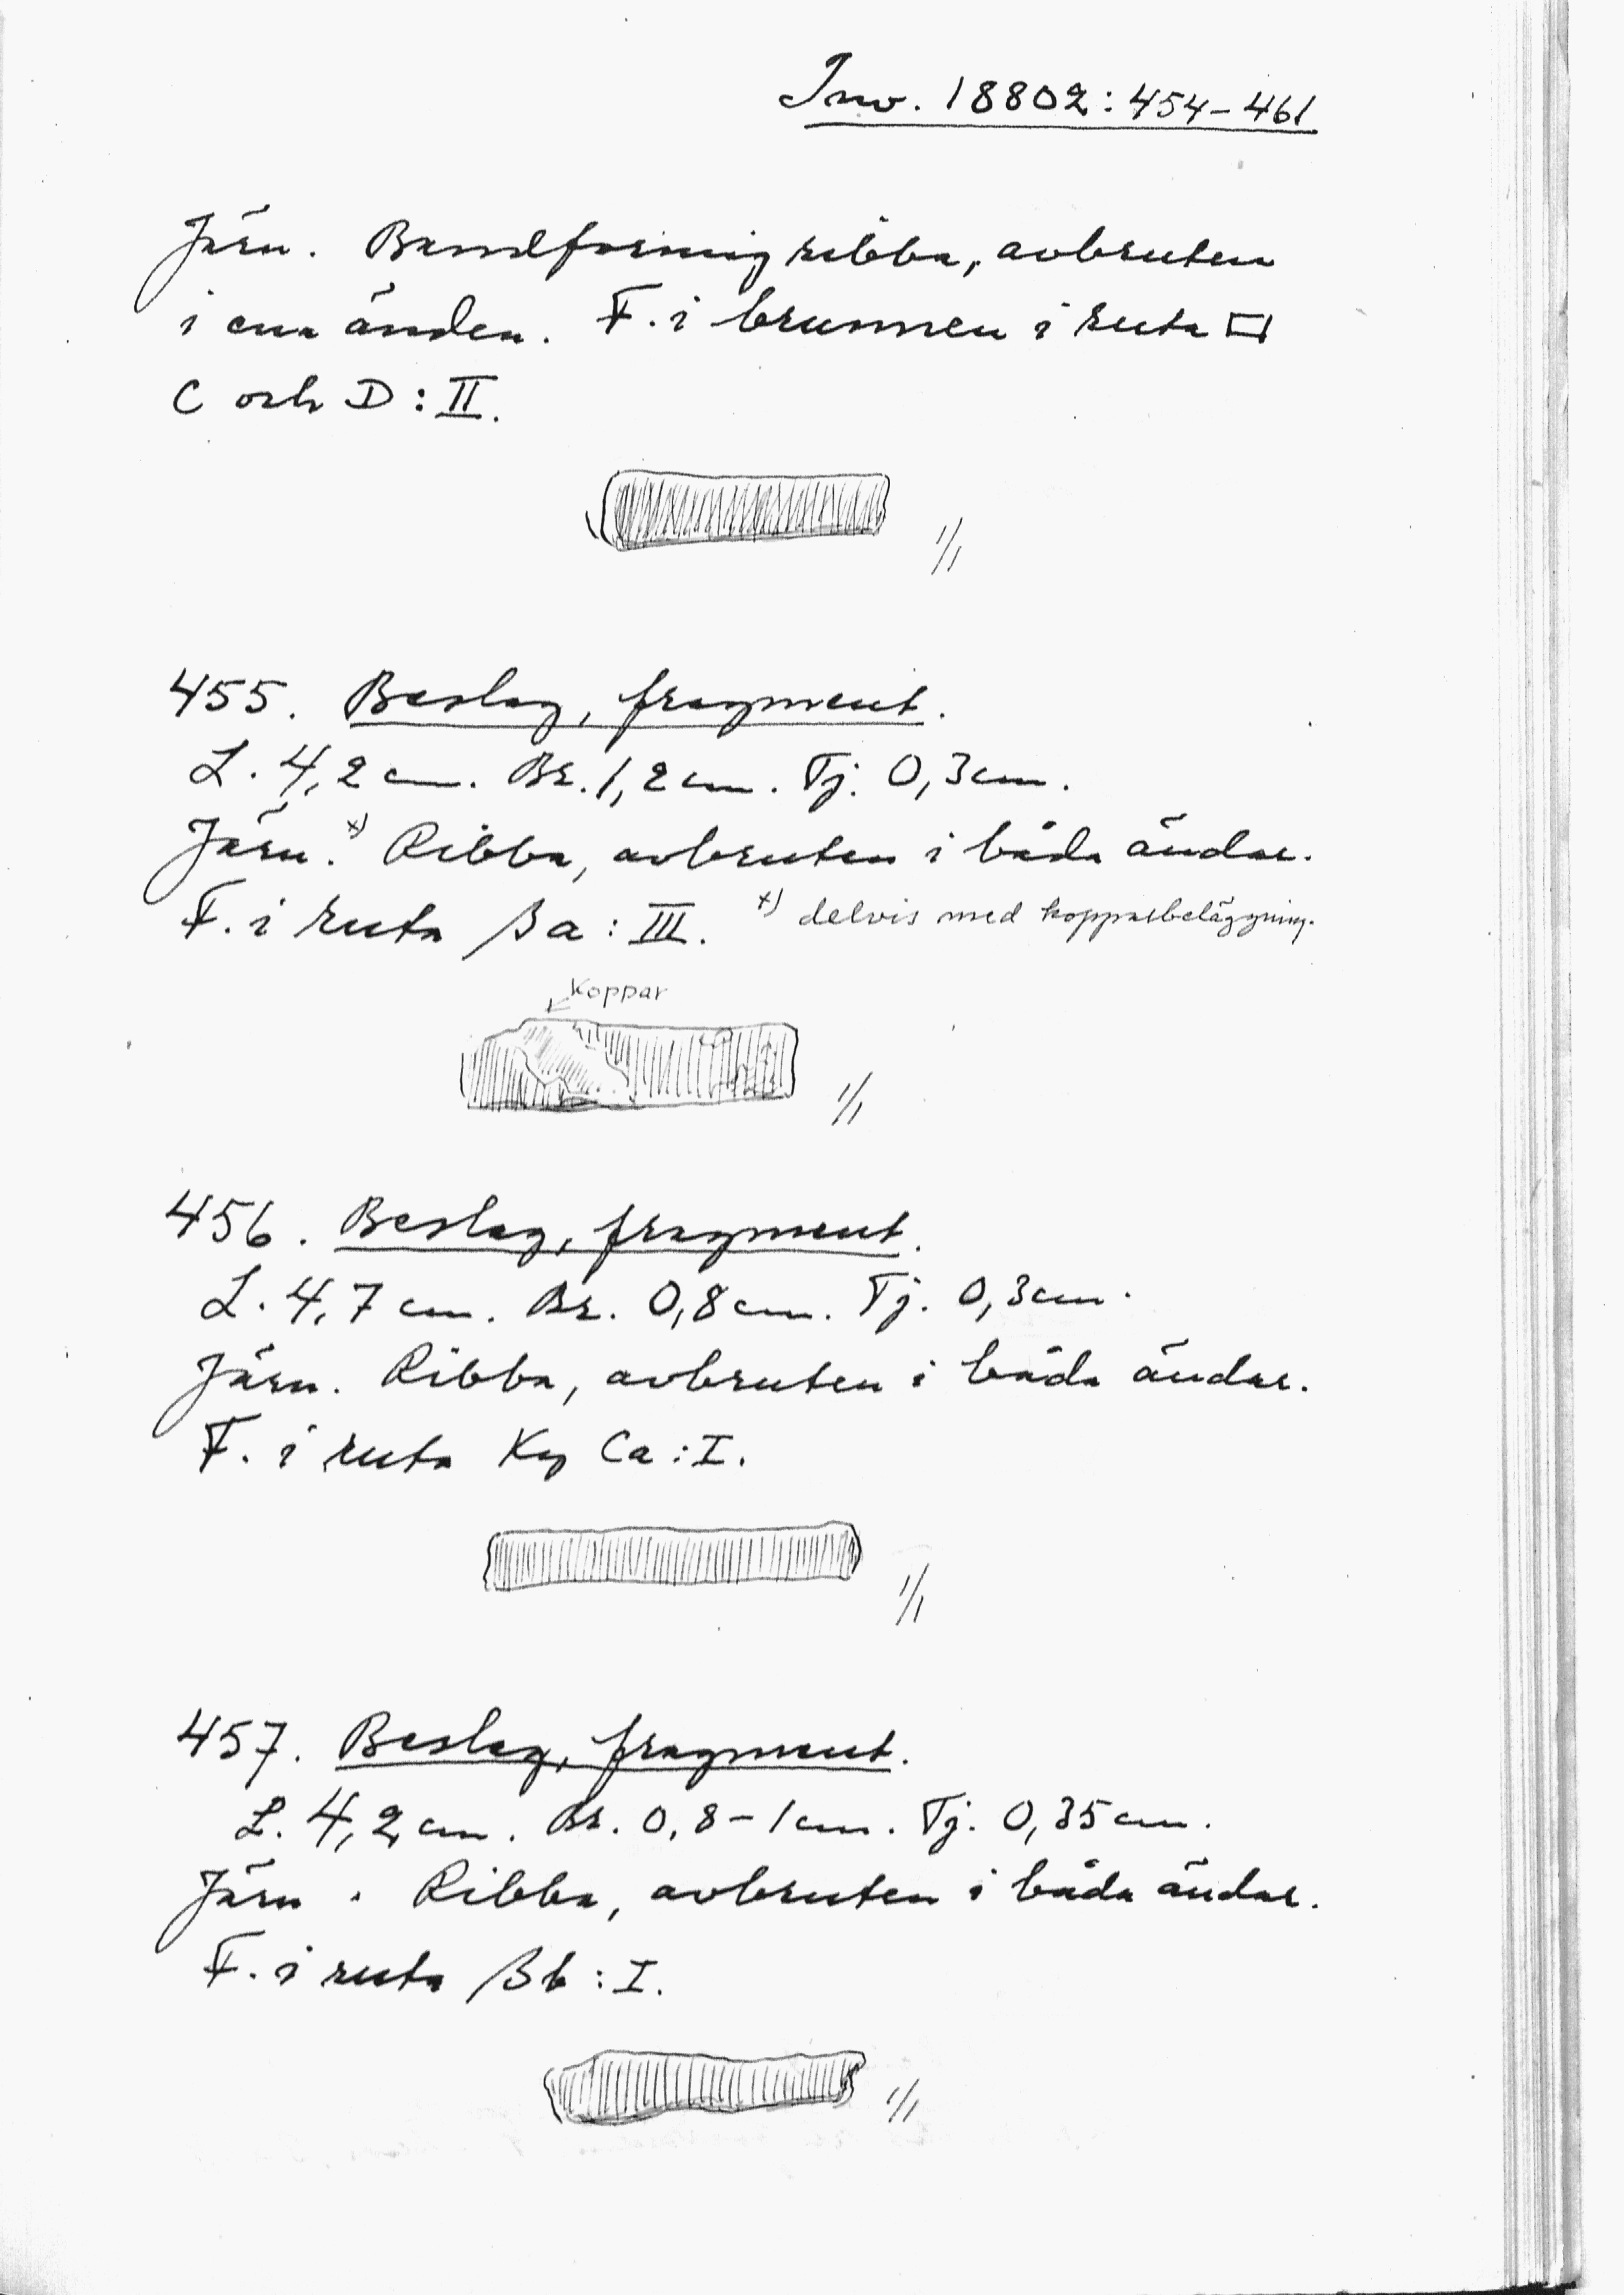 Inv. 18802:454-461
Järn. Bandformig ribba, avbruten
i ena änden. F. i brunnen i ruta
C och D:II.
1/1
455. Beslag, fragment.
L. 4,2 cm. Br. 1,2 cm. Tj. 0,3 cm.
Järn.x) Ribba, avbruten i båda ändar.
F. i ruta Ba:III. x) delvis med kopparbeläggning.
Koppar
1/1
456. Beslag, fragment.
L. 4,7 cm. Br. 0,8 cm. Tj. 0,3 cm.
Järn. Ribba, avbruten i båda ändar.
F. i ruta Kg Ca:I.
1/1
457. Beslag, fragment.
L. 4,2 cm. Br. 0,8-1 cm. Tj. 0,35 cm.
Järn. Ribba, avbruten i båda ändar.
F. i ruta Bb:I.
1/1